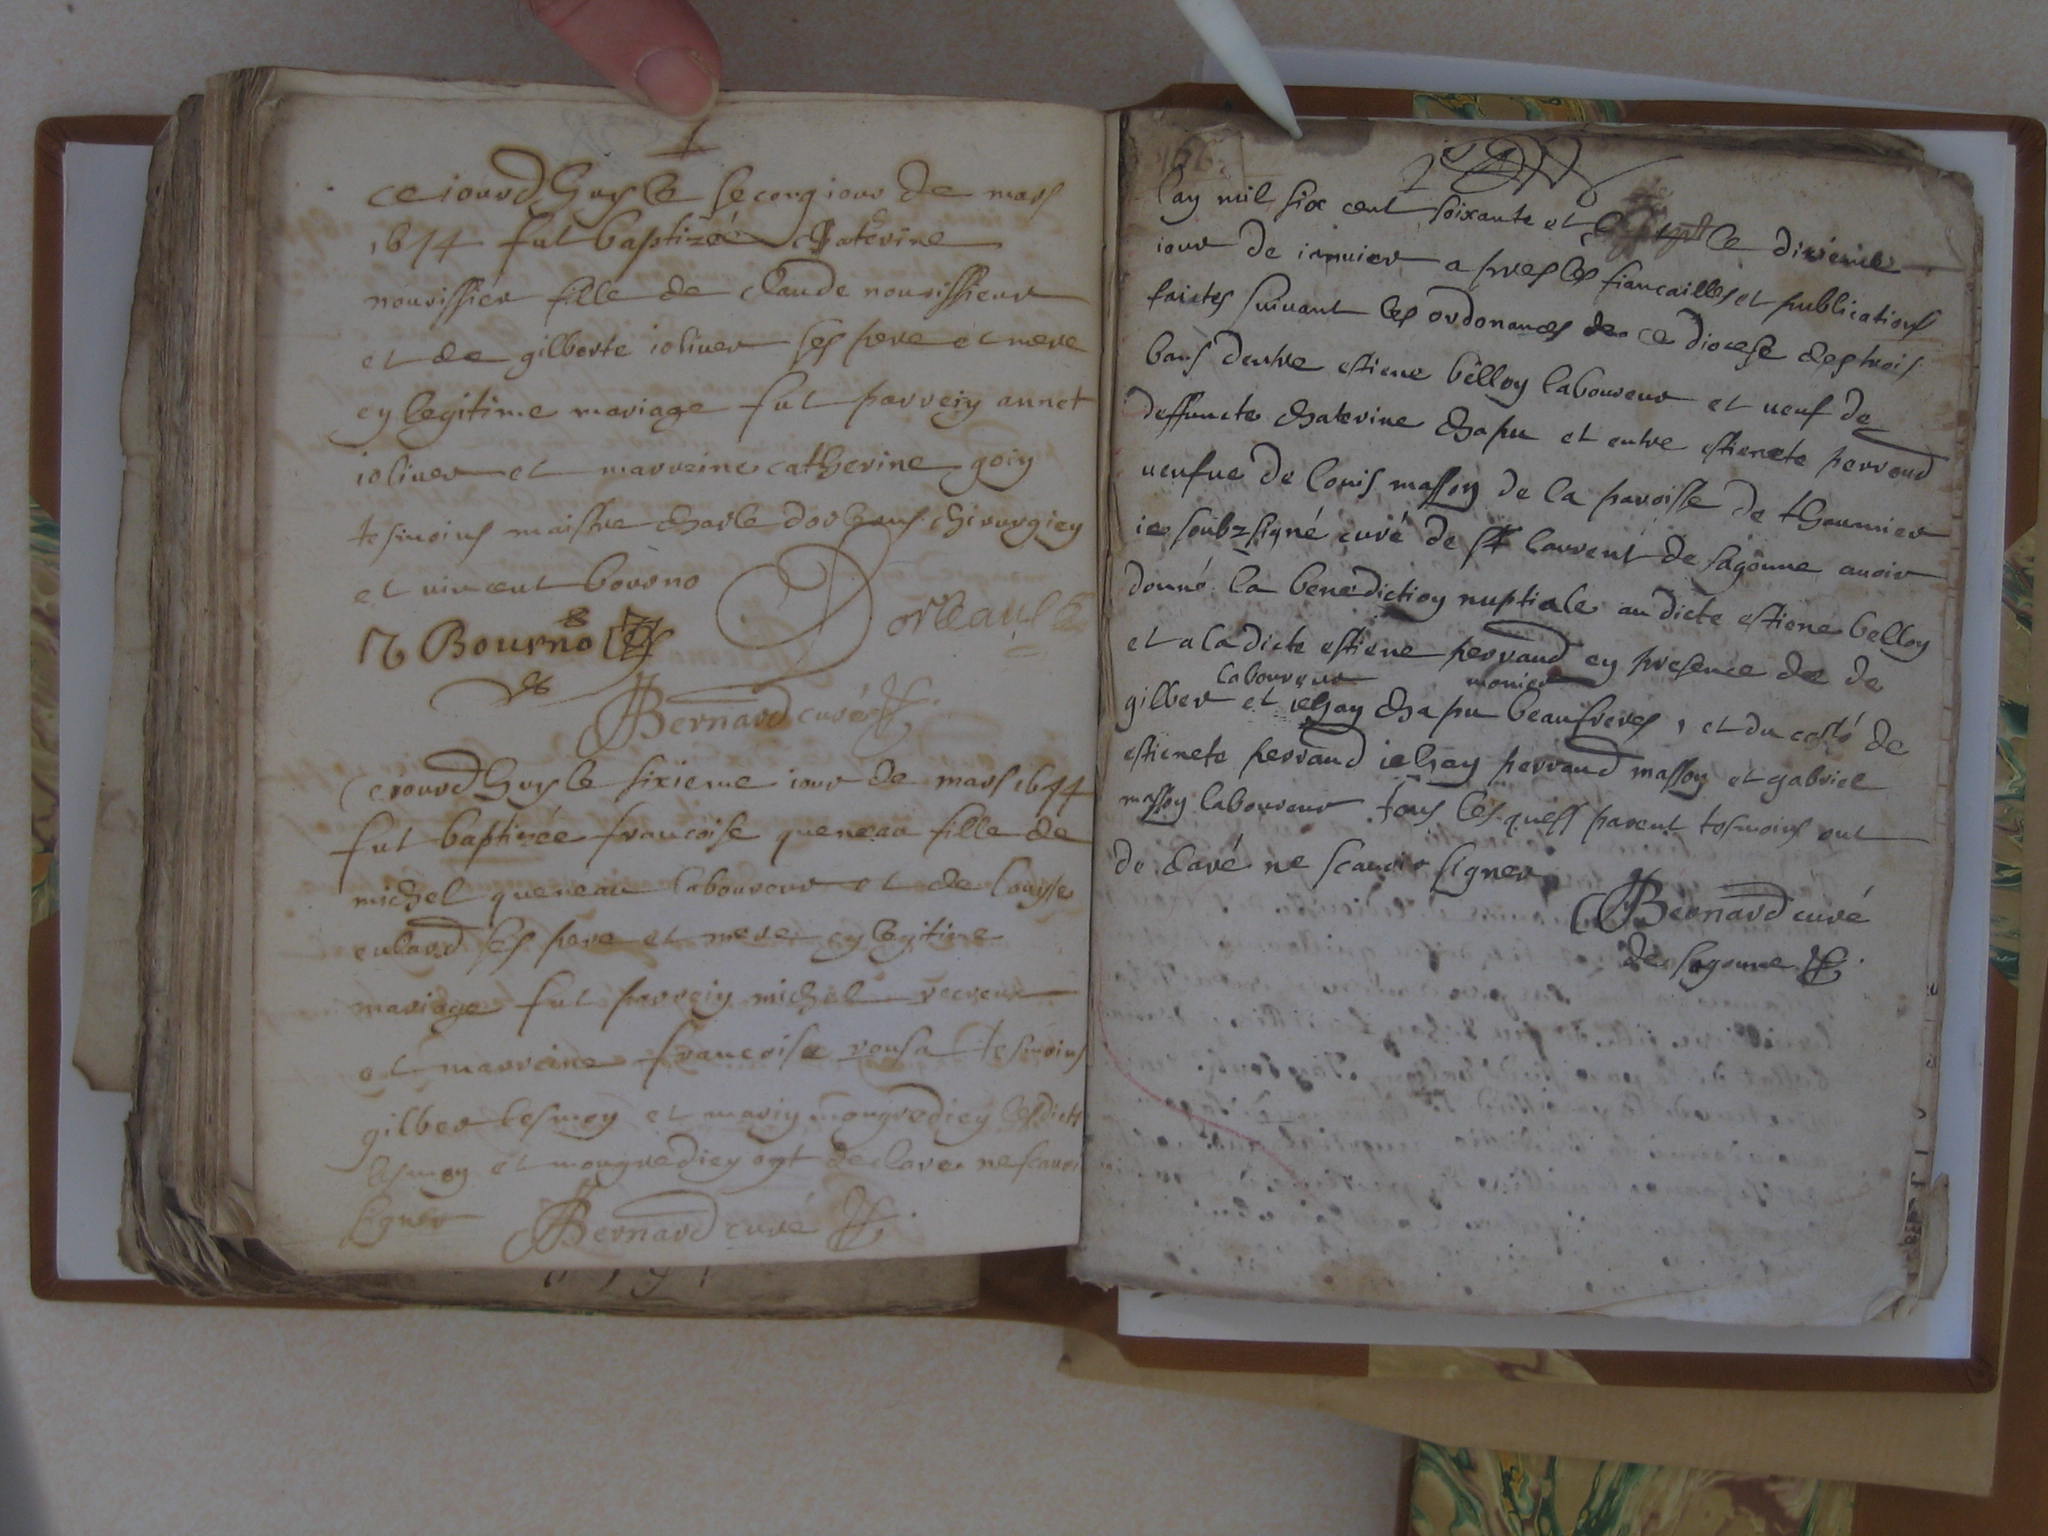 ce iourdhuy le secong iour de mars
1674 fut baptizée Chaterine
nourissier fille de claude nourissieur
et de gilberte ioliuer ses pere et mere
ey legitime mariage fut parreiy annet
ioliuer et marreine catherine goiy
tesmoins maistre charle dorleans chirurgiey
et uincent bourno
Bourno
Dorleans
Bernard curé
Ceiourdhuy le sixieme iour de mars 1674
fut baptizée francoise queneau fille de
michel queneau laboureur et de louyse
eulard ses pere et mere ey legitime
mariage fut parreiy michel
et marreine francoise rousa tesmoins
gilber lesmoy et mariy mongrediey lesdicts
lesmoy et mongrediey ont declare ne scauoir
signer
Bernard curé
166
lay mil six cent soixante et le dixieme
iour de ianuier apres les fiancailles et publications
faictes suiuant les ordonances de ce diocese des trois
bans dentre estiene belloy laboureur et ueuf de
deffuncte chaterine chapu et entre estienete perraud
ueufue de louis massoy de la paroisse de thaumier
ie soubzsigné curé de st laurent de sagonne auoir
donné la benedictioy nuptiale audicte estiene belloy
et a ladicte estiene perraud ey presence de de
laboureur monier
gilber et iehay chapu beaufreres, et du costé de
estienete perraud iehay perraud massoy et gabriel
massoy laboureur tous lesquels parent tesmoins ont
declaré ne scauoir signer
Bernard curé
de sagonne